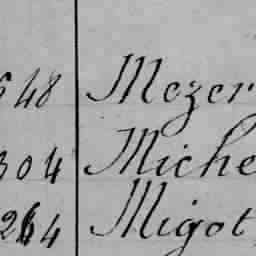 648 Mezer
304 Miche
264 Migot